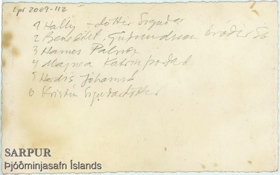 Spr 2009-112
1 Hallý - dóttir Sigurðar
2 Benedikt Guðmundsson bróðir
3 Hannes Pálsson
4 Magnea
5 Herdís Jóhannsd
6 Kristín Sigurðardóttir
SARPUR
Þjóðminjasafn Íslands